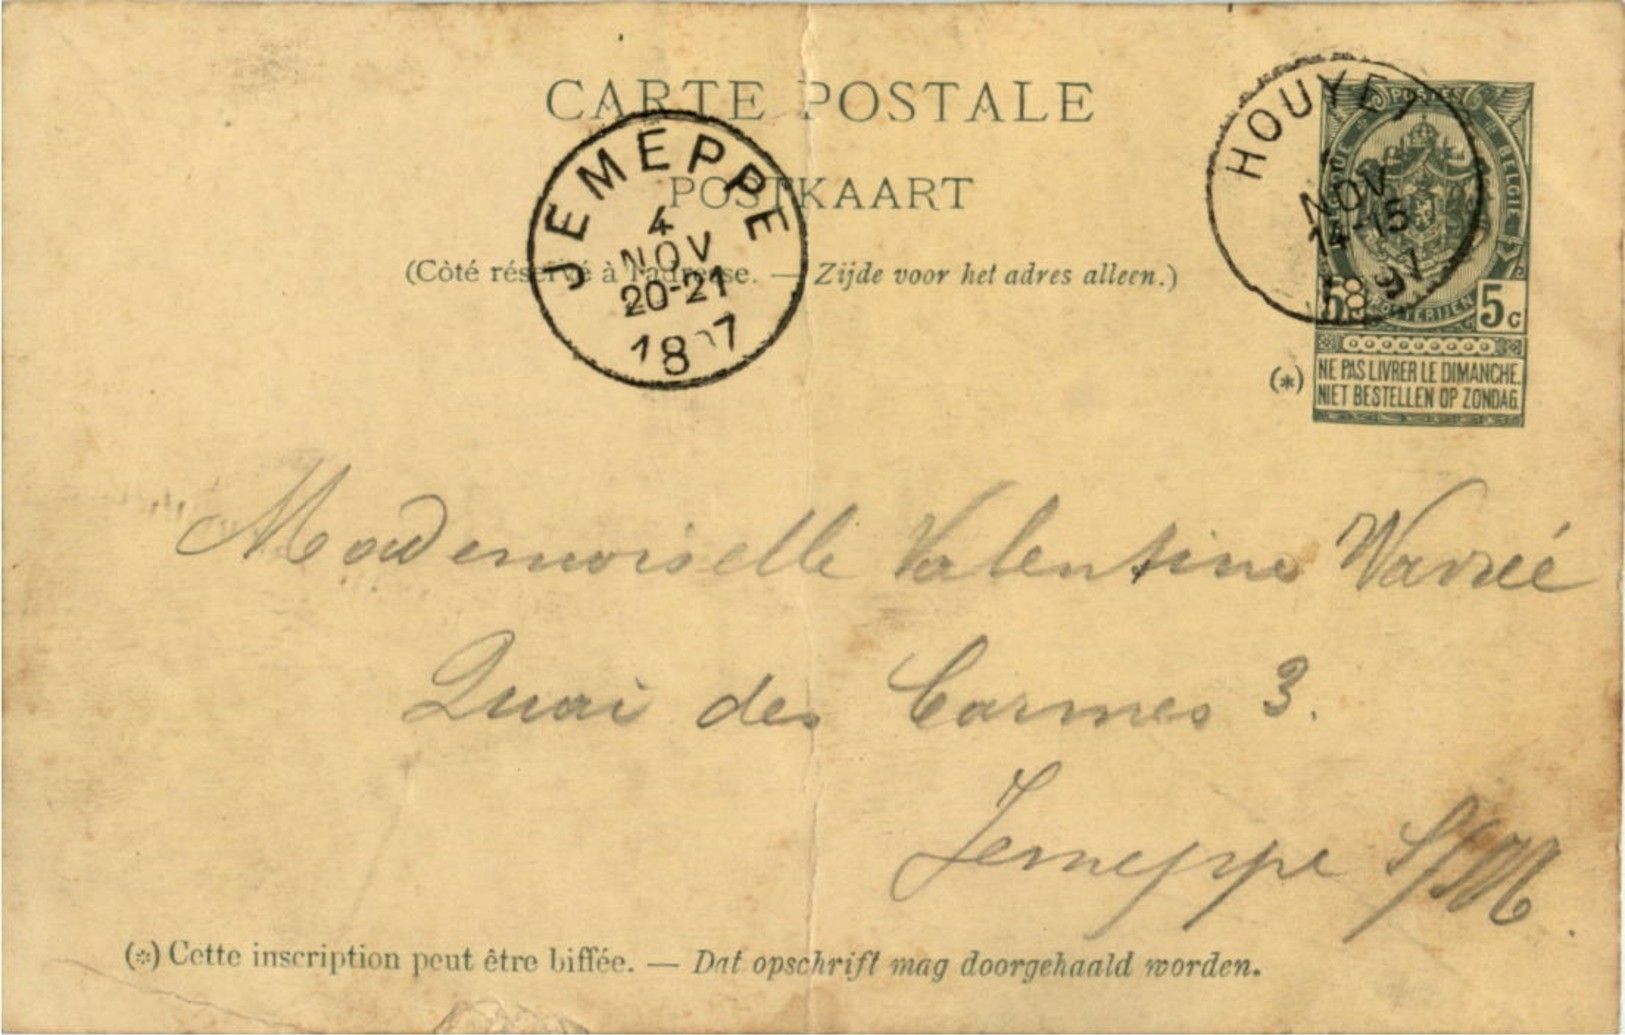 CARTE POSTALE
POSTKAART
(Côté réservé à l'adresse. — Zijde voor het adres alleen.)
JEMEPPE
4
NOV
20-21
1897
HOUYET
NOV
14-15
POSTES
BELGIE
5 5c
(*) NE PAS LIVRER LE DIMANCHE.
NIET BESTELLEN OP ZONDAG.
Mademoiselle Valentine Warzée
Quai des Carmes 3.
Jemeppe S/M.
(*) Cette inscription peut être biffée. — Dat opschrift mag doorgehaald worden.